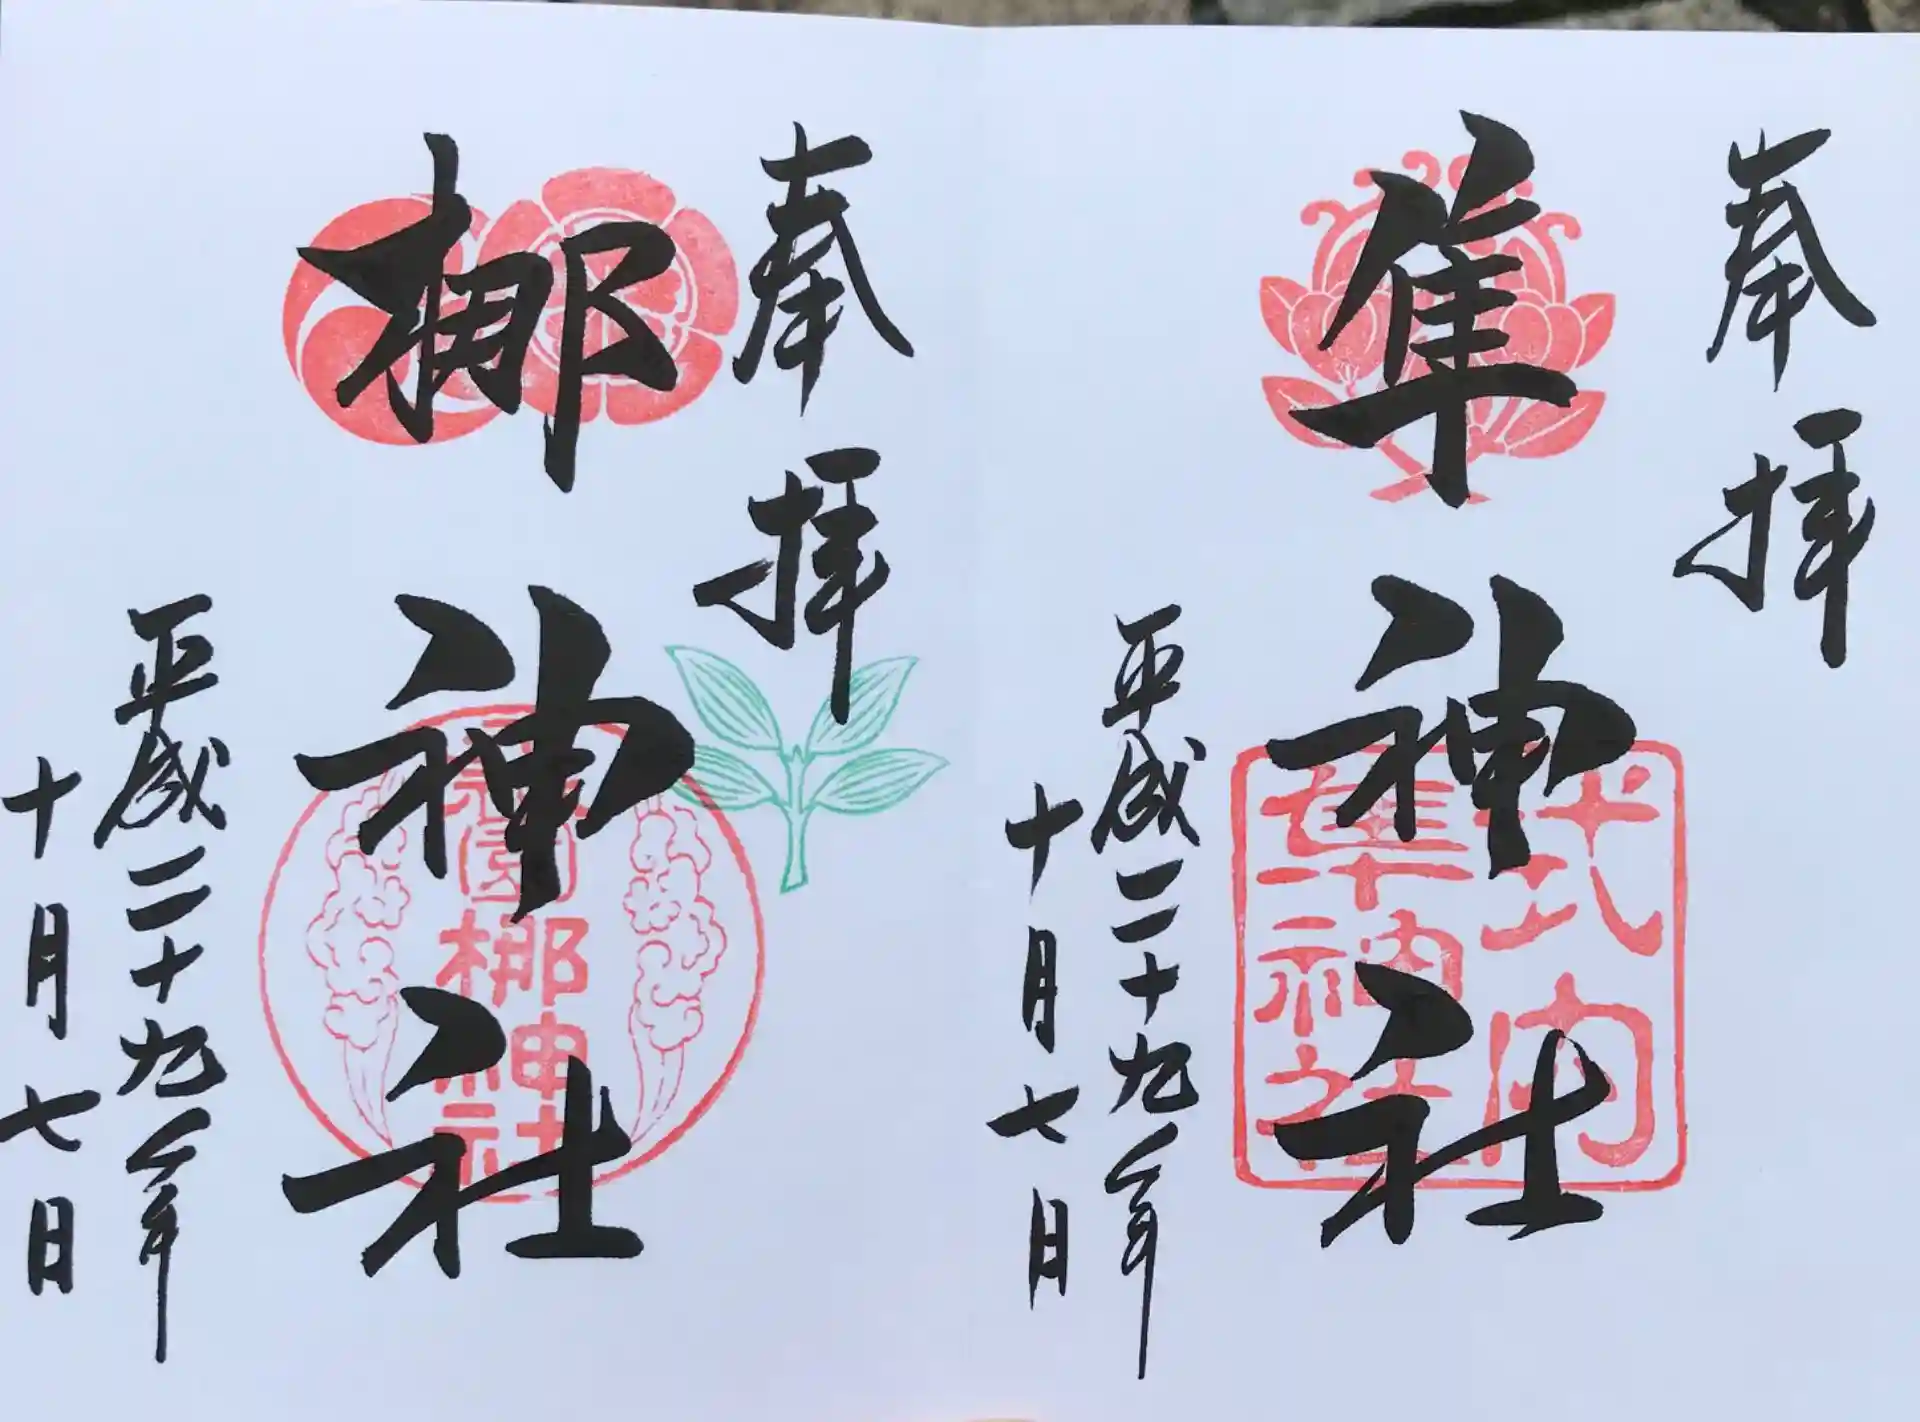 奉拝
隼神社
式内
隼神社
平成二十九年
十月七日
奉拝
梛神社
園
梛神社
平成二十九年
十月七日